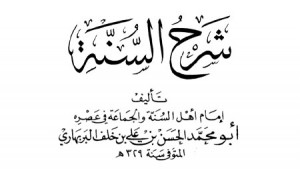 شَرْحُ السُّنَّةِ
تأليف
إمام أهل السنة والجماعة في عصره
أبو محمد الحسن بن علي بن خلف البربهاري
المتوفى سنة ٣٢٩ هـ